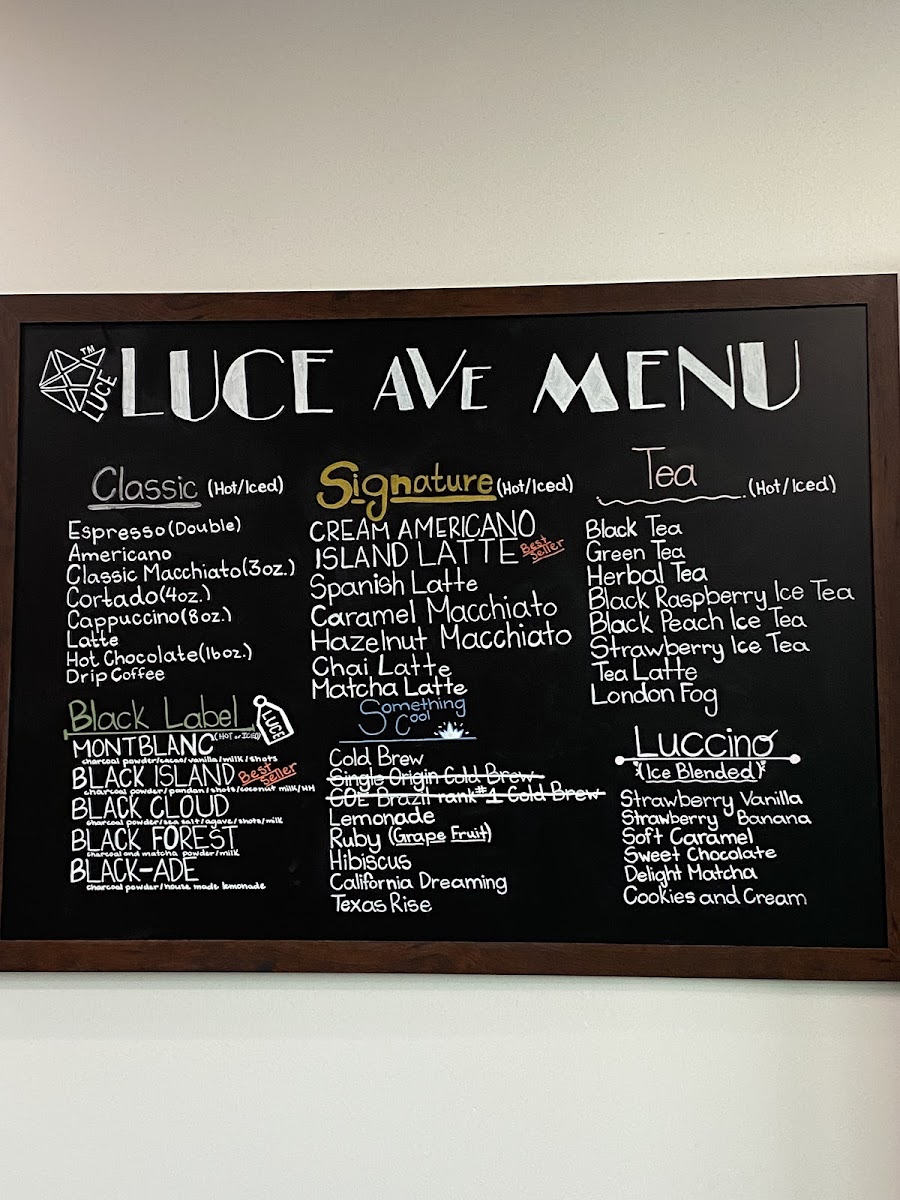 TM
LUCE
LUCE AVE MENU
Classic (Hot/Iced)
Espresso (Double)
Americano
Classic Macchiato (3oz.)
Cortado (4oz.)
Cappuccino (8oz.)
Latte
Hot Chocolate (16oz.)
Drip Coffee
Black Label (HOT or ICED)
LUCE
MONTBLANC
charcoal powder/cacao/vanilla/milk/shots
BLACK ISLAND Best Seller
charcoal powder/pandan/shots/coconut milk/HH
BLACK CLOUD
charcoal powder/sea salt/agave/shots/milk
BLACK FOREST
charcoal and matcha powder/milk
BLACK-ADE
charcoal powder/house made lemonade
Signature (Hot/Iced)
CREAM AMERICANO
ISLAND LATTE Best Seller
Spanish Latte
Caramel Macchiato
Hazelnut Macchiato
Chai Latte
Matcha Latte
Something
Cool
Cold Brew
Single Origin Cold Brew
COE Brazil rank #1 Cold Brew
Lemonade
Ruby (Grape Fruit)
Hibiscus
California Dreaming
Texas Rise
Tea (Hot/Iced)
Black Tea
Green Tea
Herbal Tea
Black Raspberry Ice Tea
Black Peach Ice Tea
Strawberry Ice Tea
Tea Latte
London Fog
Luccino
(Ice Blended)
Strawberry Vanilla
Strawberry Banana
Soft Caramel
Sweet Chocolate
Delight Matcha
Cookies and Cream